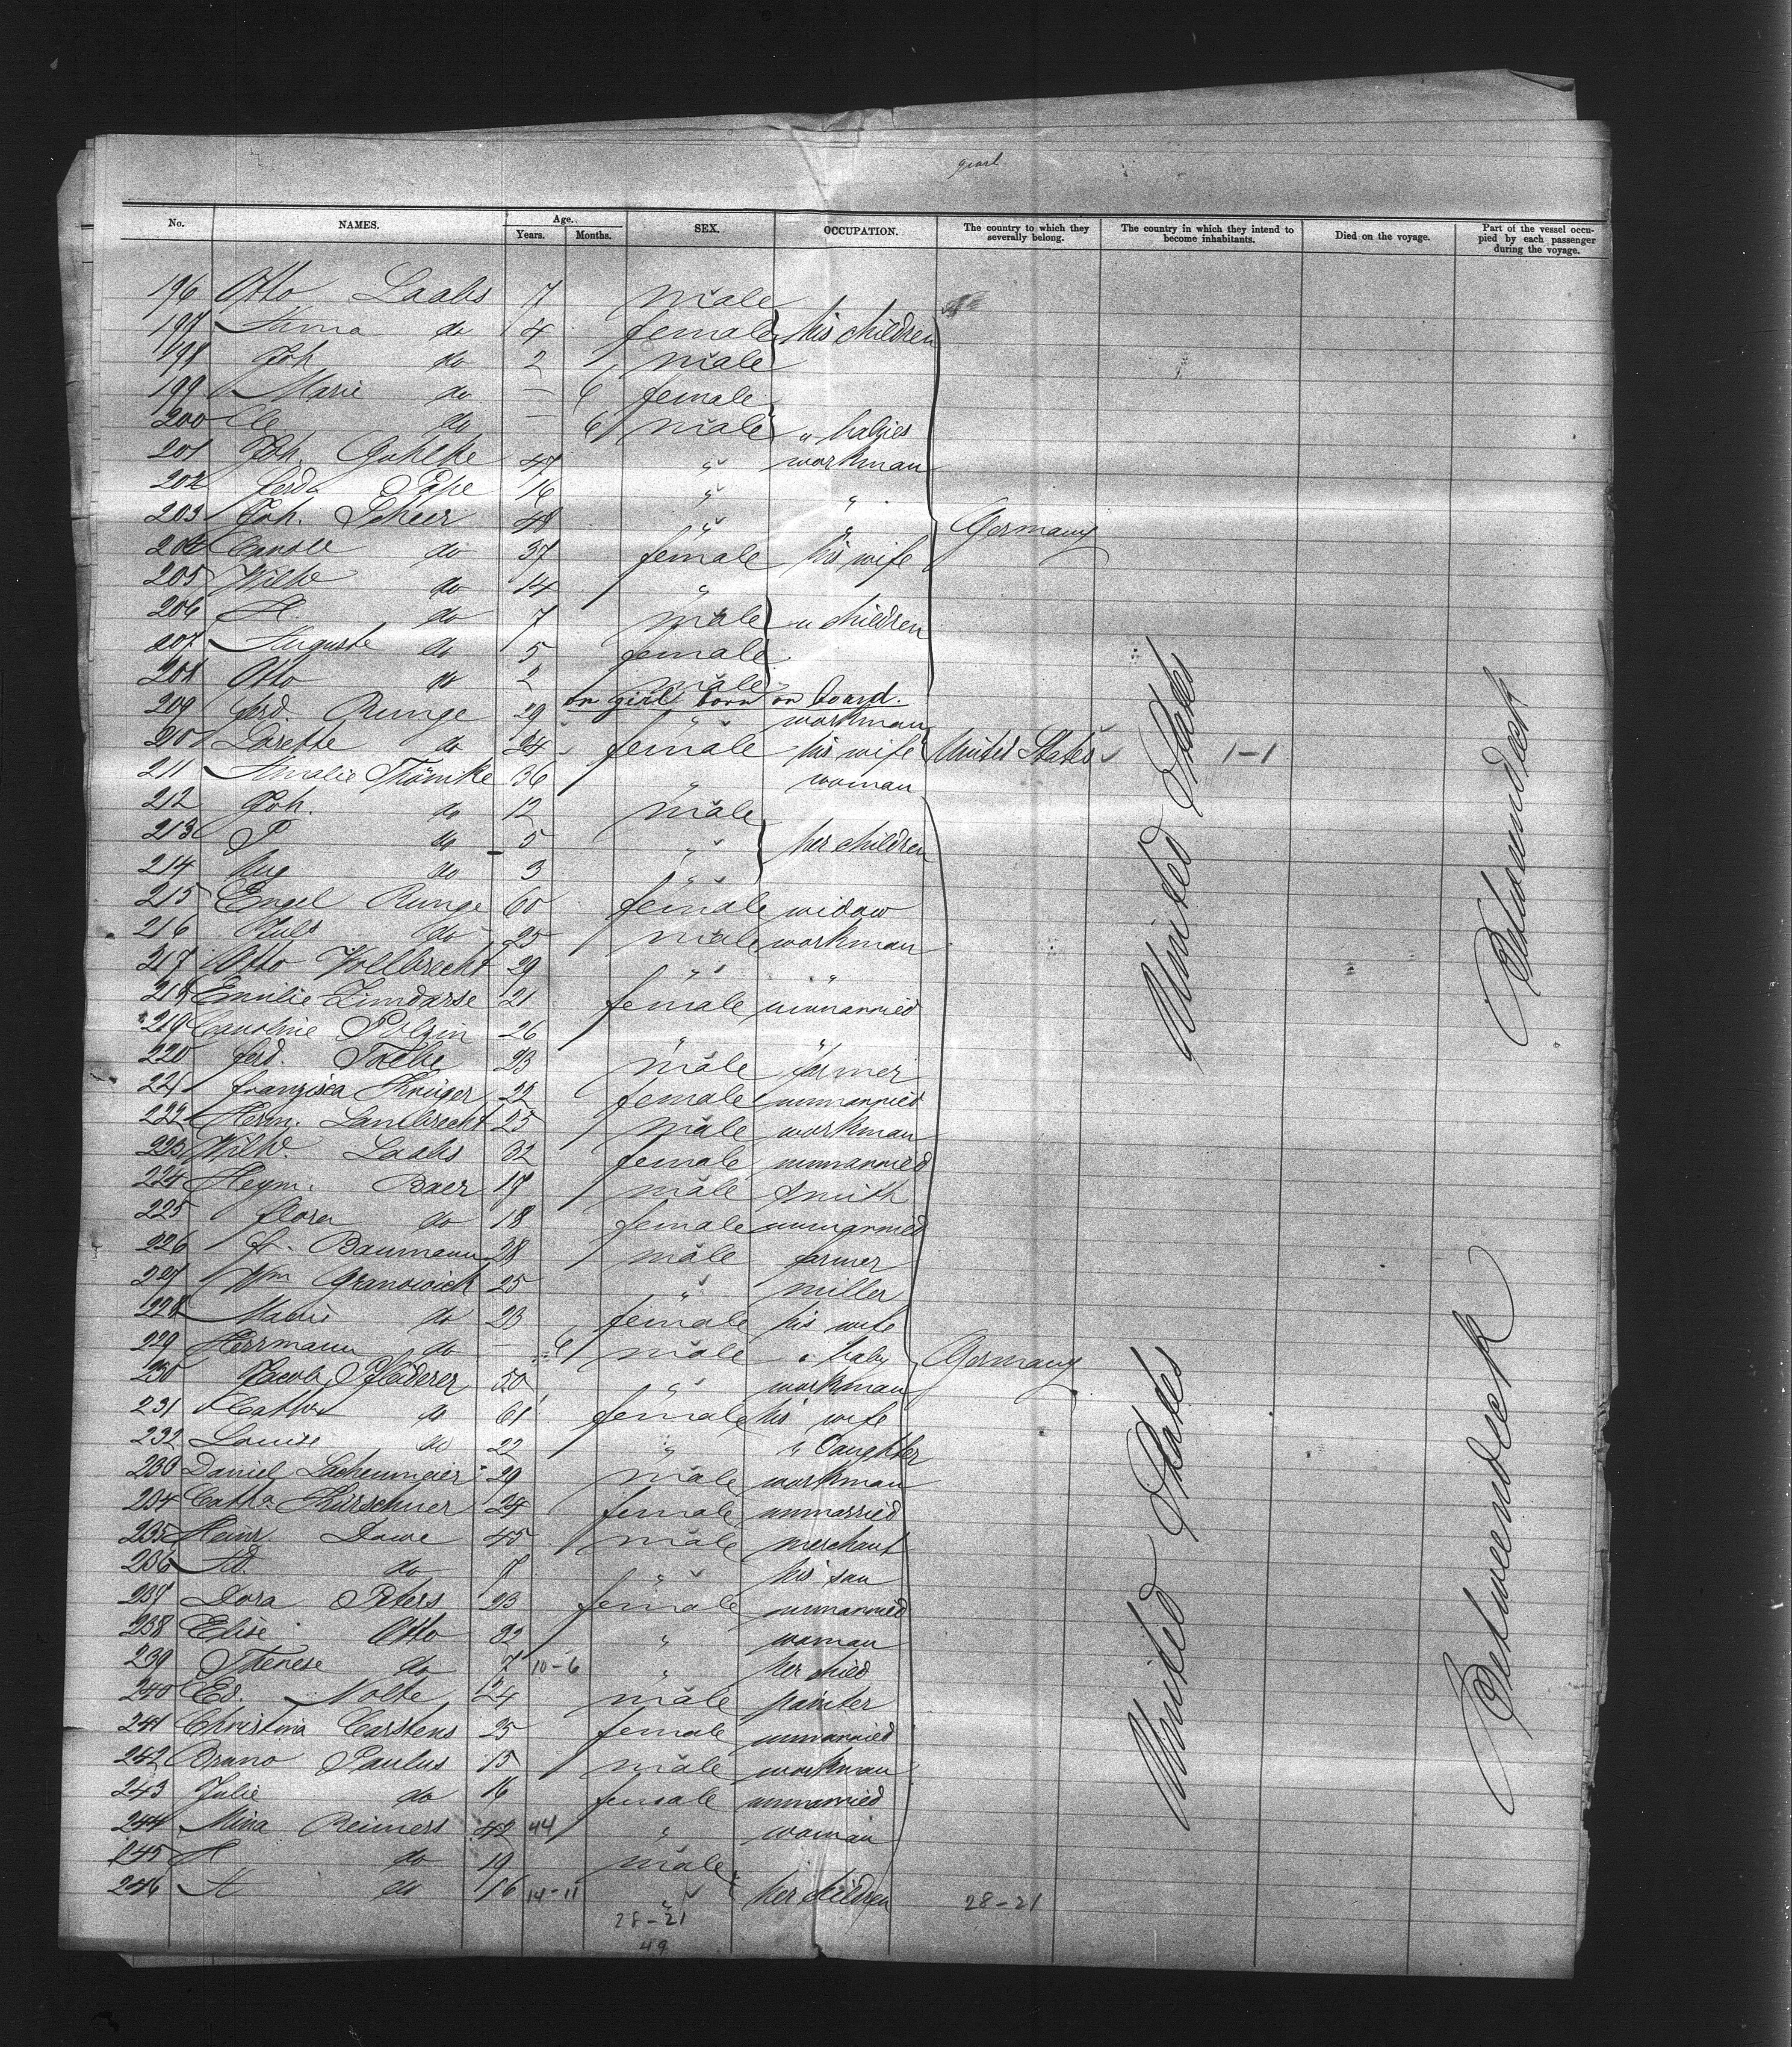 girl
No. NAMES. Age. Years. Months. SEX. OCCUPATION. The country to which they severally belong. The country in which they intend to become inhabitants. Died on the voyage. Part of the vessel occupied by each passenger during the voyage.
196 Otto Laabs 7 male
197 Anna do 4 female his children
198 Joh do 2 male
199 Marie do — 6 female
200 do — 6 male " babies
201 Joh. Guhlke 47 " workman
202 Ferd. Pape 16 " "
203 Joh. Scheer 48 " " Germany
204 Carole do 37 female his wife
205 Wilhe do 14 "
206 H do 7 male " children
207 Auguste do 5 female
208 Otto do 2 male
on girl born on board.
209 Ferd. Runge 29 " workman
210 Dorette do 24 female his wife United States 1-1
211 Amalie Thömke 36 " woman
212 Joh. do 12 male
213 P do 5 " her children
214 Aug do 3 "
215 Engel Runge 60 female widow
216 Juls do 25 male workman
217 Otto Vollbrecht 29 " "
218 Emilie Zimdarse 21 female unmarried
219 Caroline Polzin 26 " "
220 Ferd. 23 male farmer
221 Franzisca Krüger 22 female unmarried
222 Herm. Lambrecht 25 male workman
223 Wilhe. Laabs 32 female unmarried
224 Heym. Baer 17 male smith
225 Flora do 18 female unmarried
226 Fr. Baumann 28 male farmer
227 Wm Granswich 25 " miller
228 Marie do 23 female his wife
229 Herrmann do — 6 male " baby Germany
230 Jacob Pfleiderer 50 " workman
231 Catha do 61 female his wife
232 Louise do 22 " " Daughter
233 Daniel Lachenmeier 29 male workman
234 Catha. Kürschner 24 female unmarried
235 Heinr. Dawe 45 male merchant
236 Ad. do 8 " his son
237 Dora Peters 23 female unmarried
238 Elise Otto 32 " woman
239 Therese do 7 10-6 " her child
240 Ed. Nolte 24 male painter
241 Christina Carstens 25 female unmarried
242 Bruno Paulus 15 male workman
243 Julie do 16 female unmarried
244 Mina Reimers 42 44 " woman
245 H do 19 male
246 A do 16 14-11 " her children 28-21
28-21
49
United States
United States
Betweendeck
Betweendeck